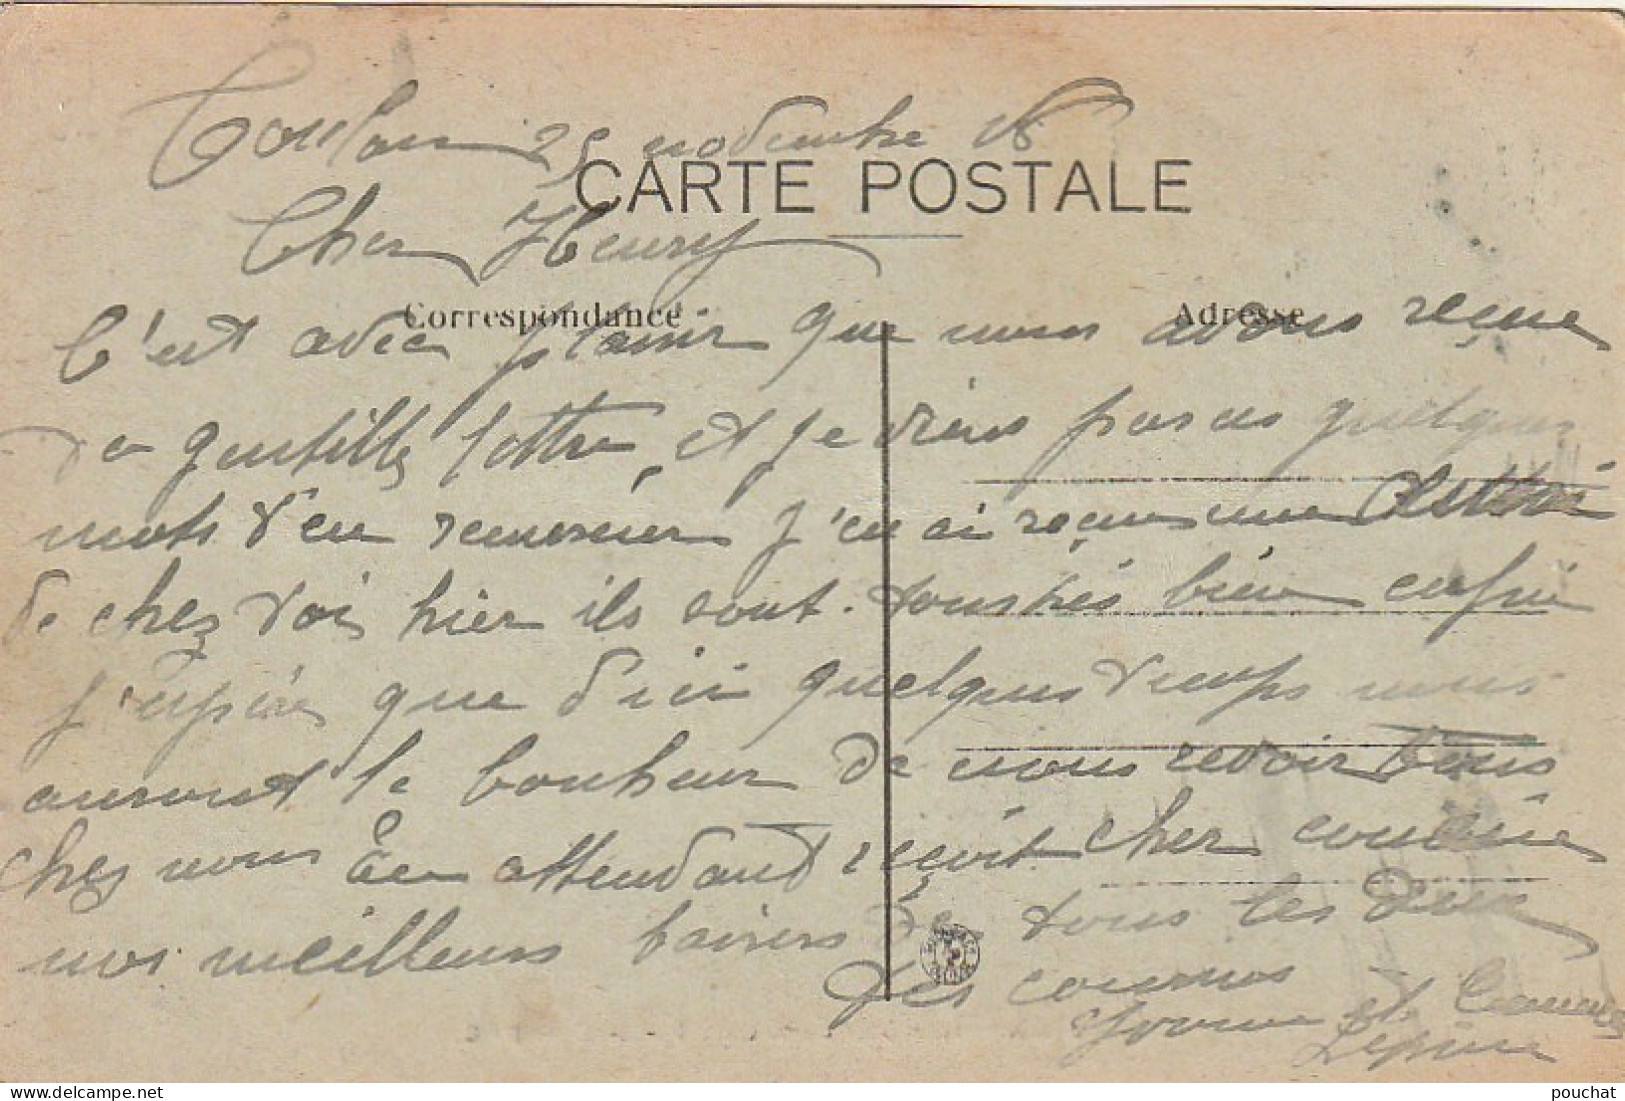 Toulon 25 novembre 16
CARTE POSTALE
Cher Henry
Correspondance
Adresse
C'est avec plaisir que nous avons reçue
ta gentille lettre, et je viens par ces quelques
mots t'en remercier j'en ai reçue une aussi
de chez toi hier ils sont tous très bien enfin
j'espère que d'ici quelques temps nous
auront le bonheur de nous revoir tous
chez nous En attendant reçoit cher cousin
nos meilleurs baisers de tous les deux
Tes cousines
Yvonne et
Lépine
pouchat